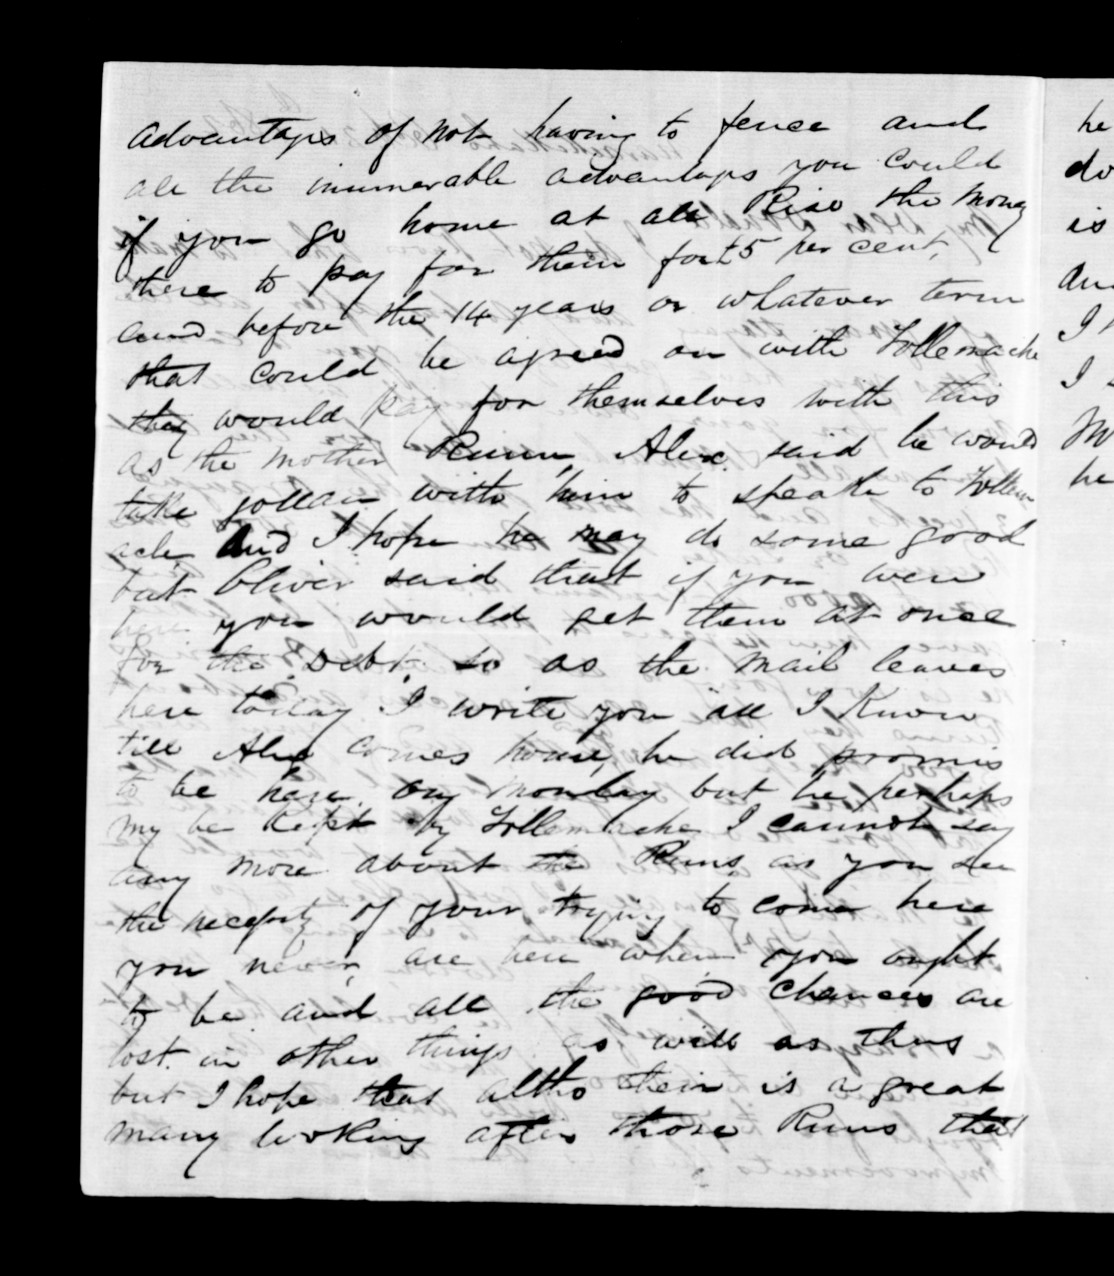 advantages of not having to fence and
all the inumerable advantages you could
if you go home at all Rise the Money
there to pay for them for 5 per cent,
and before the 14 years or whatever term
that could be agreed on with Tollemache
they would pay for themselves with this
as the mother Runn, Alex said he would
take with him to speak to Tollem
ache, and I hope he may do some good
but Oliver said that if you were
here you would get them at once
for the Debt. so as the mail leaves
here today I write you all I Know
till Alex comes home, he did promis
to be here on monday but he perhaps
my be Kept by Tollemache I cannot say
any more about the Runs as you see
the necesity of your trying to come here
you never are here when you ought
to be and all the good chances are
lost in other things as well as this
but I hope that altho their is a great
many looking after those Runs that
he
do
is
an
I
I
M
he